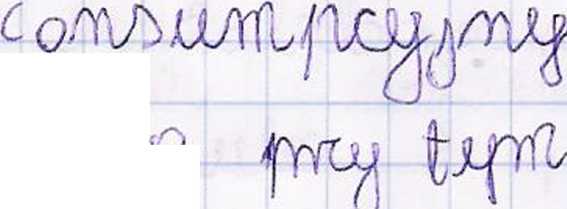 consumpcyjny
przy tym